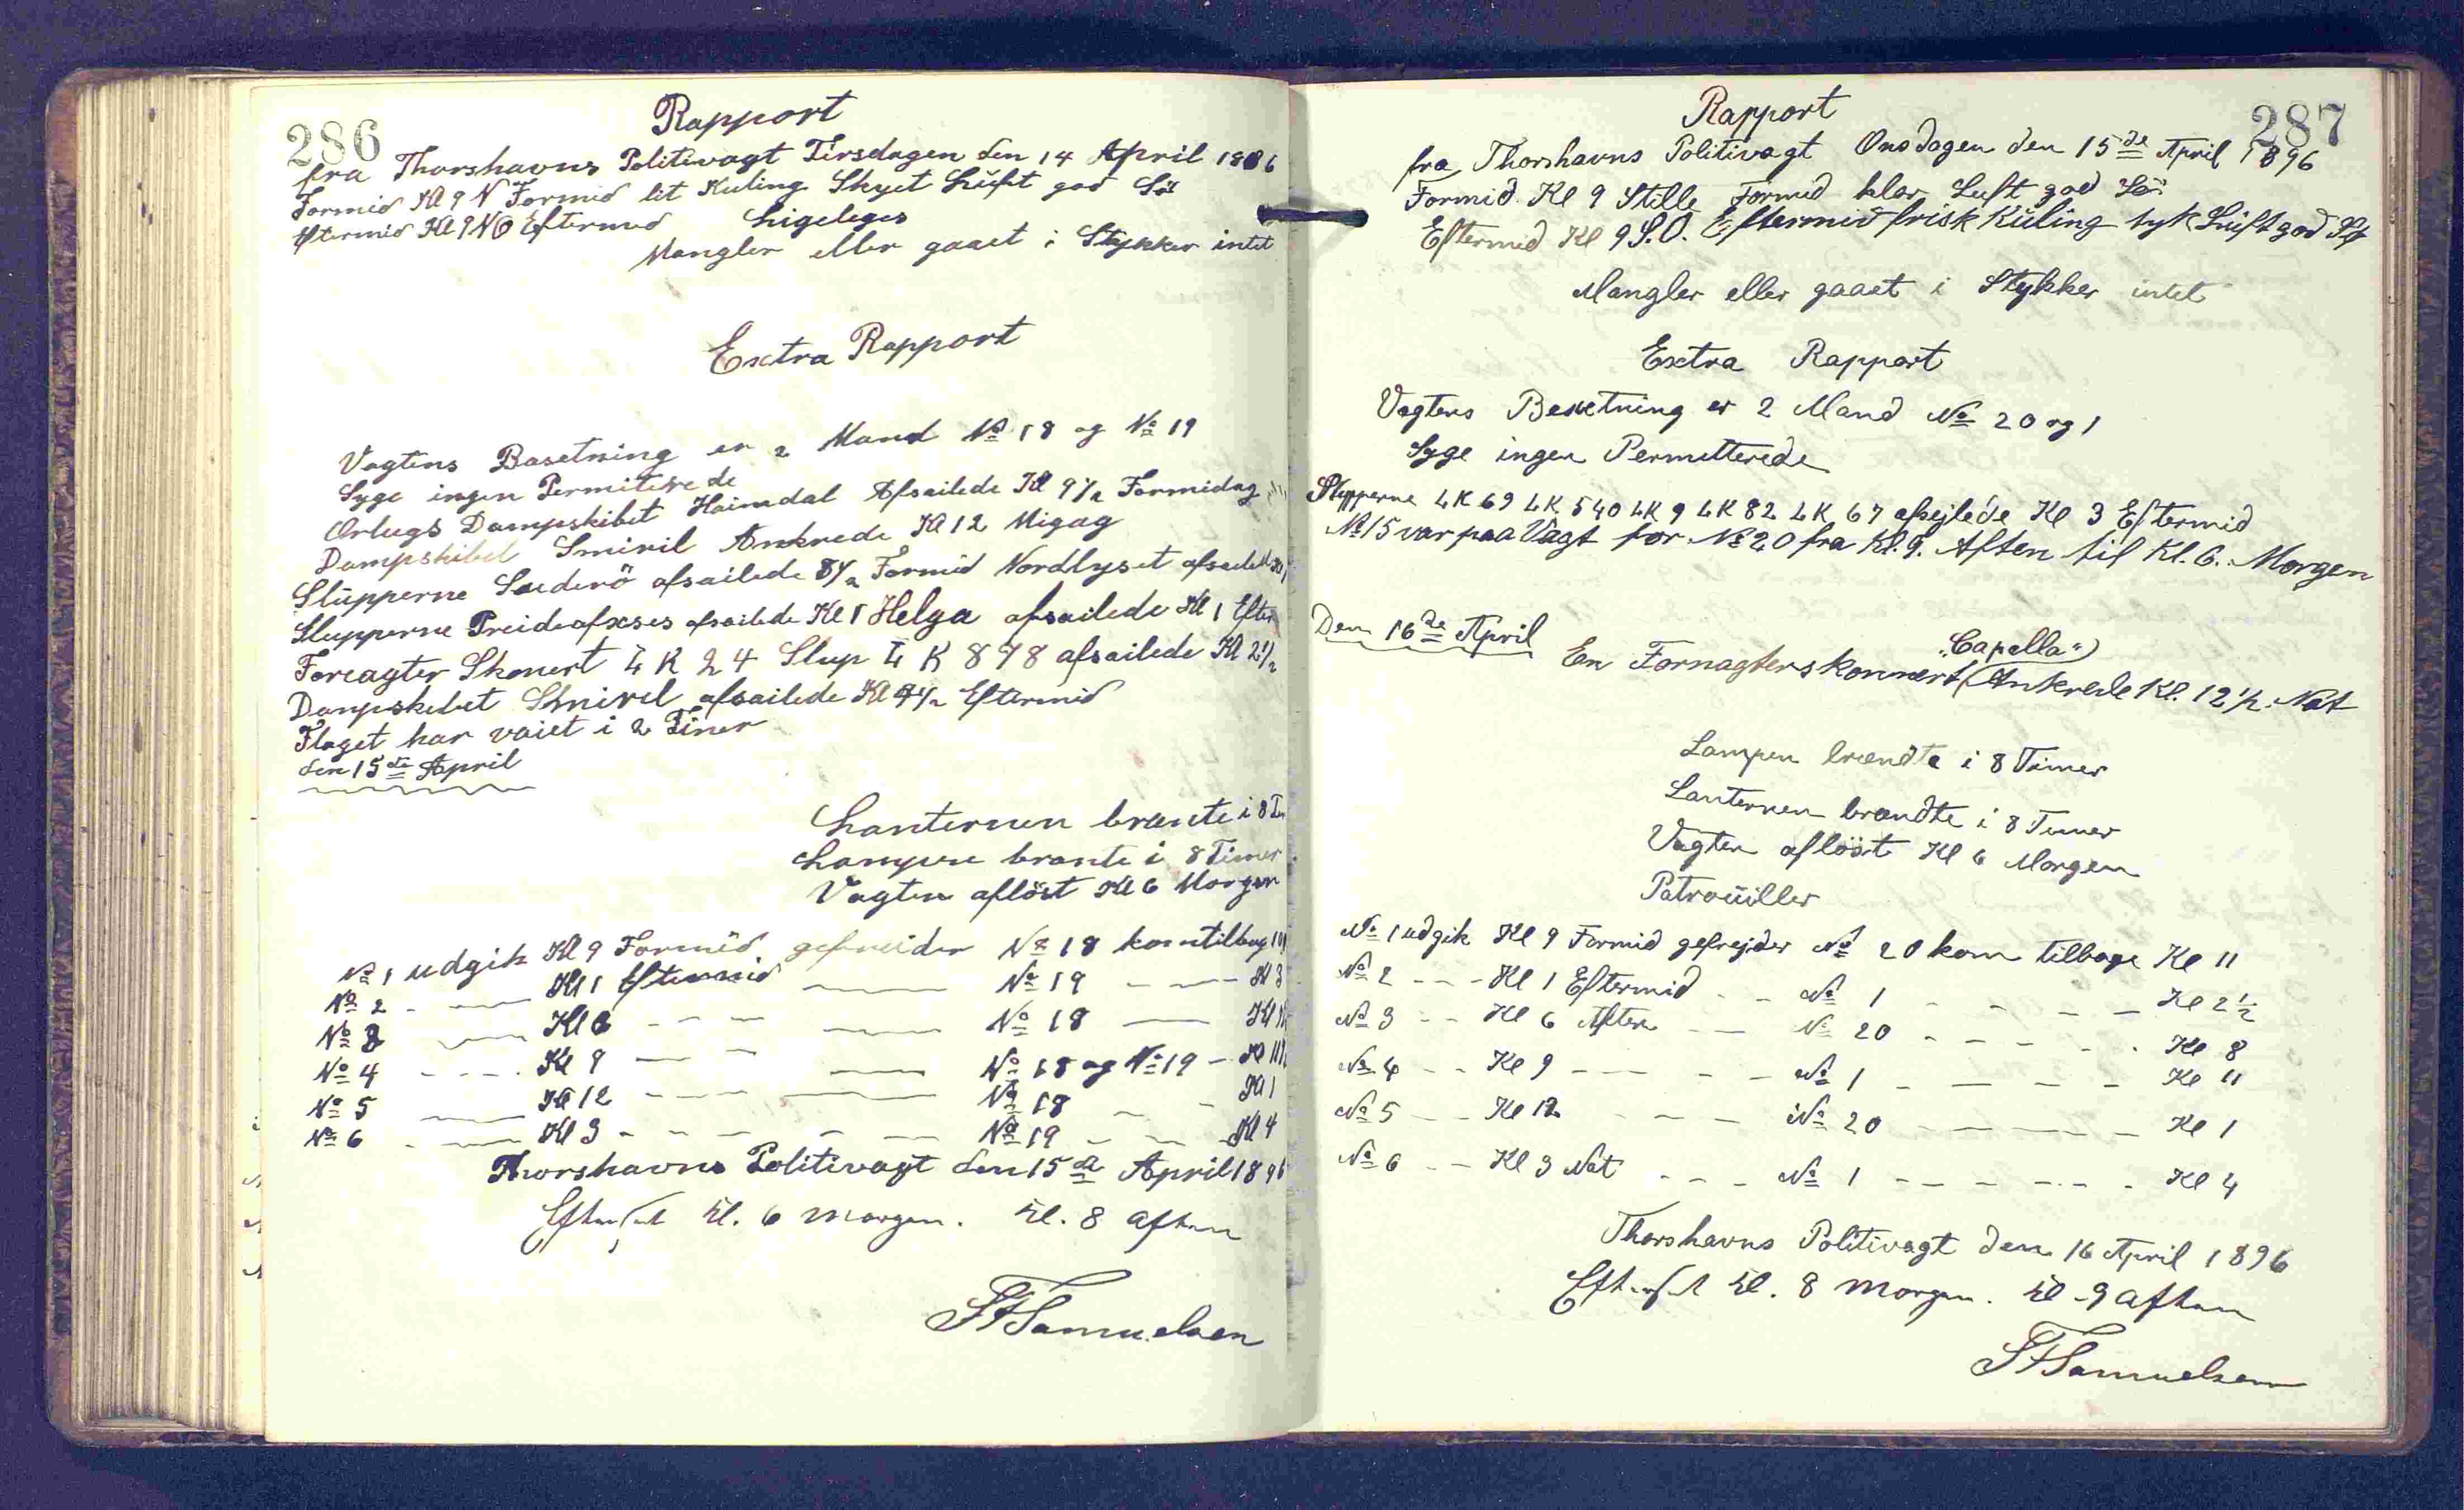 286
Rapport
fra Thorshavns Politivagt Tirsdagen den 14 April 1896
Formid Kl 9 N Formid lit Kuling Skyet Luft god Sö
Eftermid Kl 9 NO Eftermid Ligeleges
Mangler eller gaaet i Stykker intet
Exstra Rapport
Vagtens Basetning er 2 Mand № 18 og № 19
Syge ingen Permiterede
Orlugs Dampskibet Haimdal Afsailede Kl 9½ Formidag
Dampskibet Smiril Ankrede Kl 12 Migag
Slupperne Suderö afsailede 8½ Formid Nordlyset
Slupperne afsailede Kl 1 Helga afsailede Kl 1 Efter
Skonert LK 24 Slup LK 878 afsailede Kl 2½
Dampskibet Smiril afsailede Kl 4½ Eftermid
Flaget har vaiet i 2 Timer
den 15de April
Lanternen brænte i 8
Lampen brante i 8 Timer
Vagten aflöst Kl 6 Morgen
№ 1 udgik Kl 9 Formid gefreider № 18 kom tilbag
№ 2 - — Kl 1 Eftermid — № 19 - — Kl 3
№ 3 — Kl 6 - - — № 18 — Kl
№ 4 - - - Kl 9 — - — № 18 og № 19 - Kl
№ 5 — Kl 12 - - - — № 18 - - Kl 1
№ 6 - — Kl 3 - - - - — № 19 - - Kl 4
Thorshavns Politivagt den 15de April 1896
Efterset kl. 6 morgen. kl. 8 aften
Samuelsen
287
Rapport
fra Thorshavns Politivagt Onsdagen den 15de April 1896
Formid. Kl 9 Stille Formid klar Luft god Sö
Eftermid Kl 9 S.O. Eftermid frisk Kuling tyk Luft god Sö
Mangler eller gaaet i Stykker intet
Exstra Rapport
Vagtens Besetning er 2 Mand № 20 og 1
Syge ingen Permitterede
Slupperne LK 69 LK 540 LK 9 LK 82 LK 67 afsejlede Kl 3 Eftermid
№ 15 var paa Vagt for № 20 fra Kl. 9. Aften til Kl. 6. Morgen
Den 16de April
En Fornagterskonnert („Capella“) Ankrede Kl. 12½. Nat
Lampen brændte i 8 Timer
Lanternen brændte i 8 Timer
Vagten aflöst Kl 6 Morgen
Patrouiller
№ 1 udgik Kl 9 Formid gefrejder № 20 kom tilbage Kl 11
№ 2 - - - Kl 1 Eftermid - - № 1 - - - - Kl 2½
№ 3 - - Kl 6 Aften - — № 20 - - - - - Kl 8
№ 4 - - Kl 9 - — - - № 1 - — - - Kl 11
№ 5 - - Kl 12 - - - № 20 - - - - - Kl 1
№ 6 - - Kl 3 Nat - - - № 1 - - - - - Kl 4
Thorshavns Politivagt den 16 April 1896
Efterset kl. 8 morgen. kl. 9 aften
Samuelsen